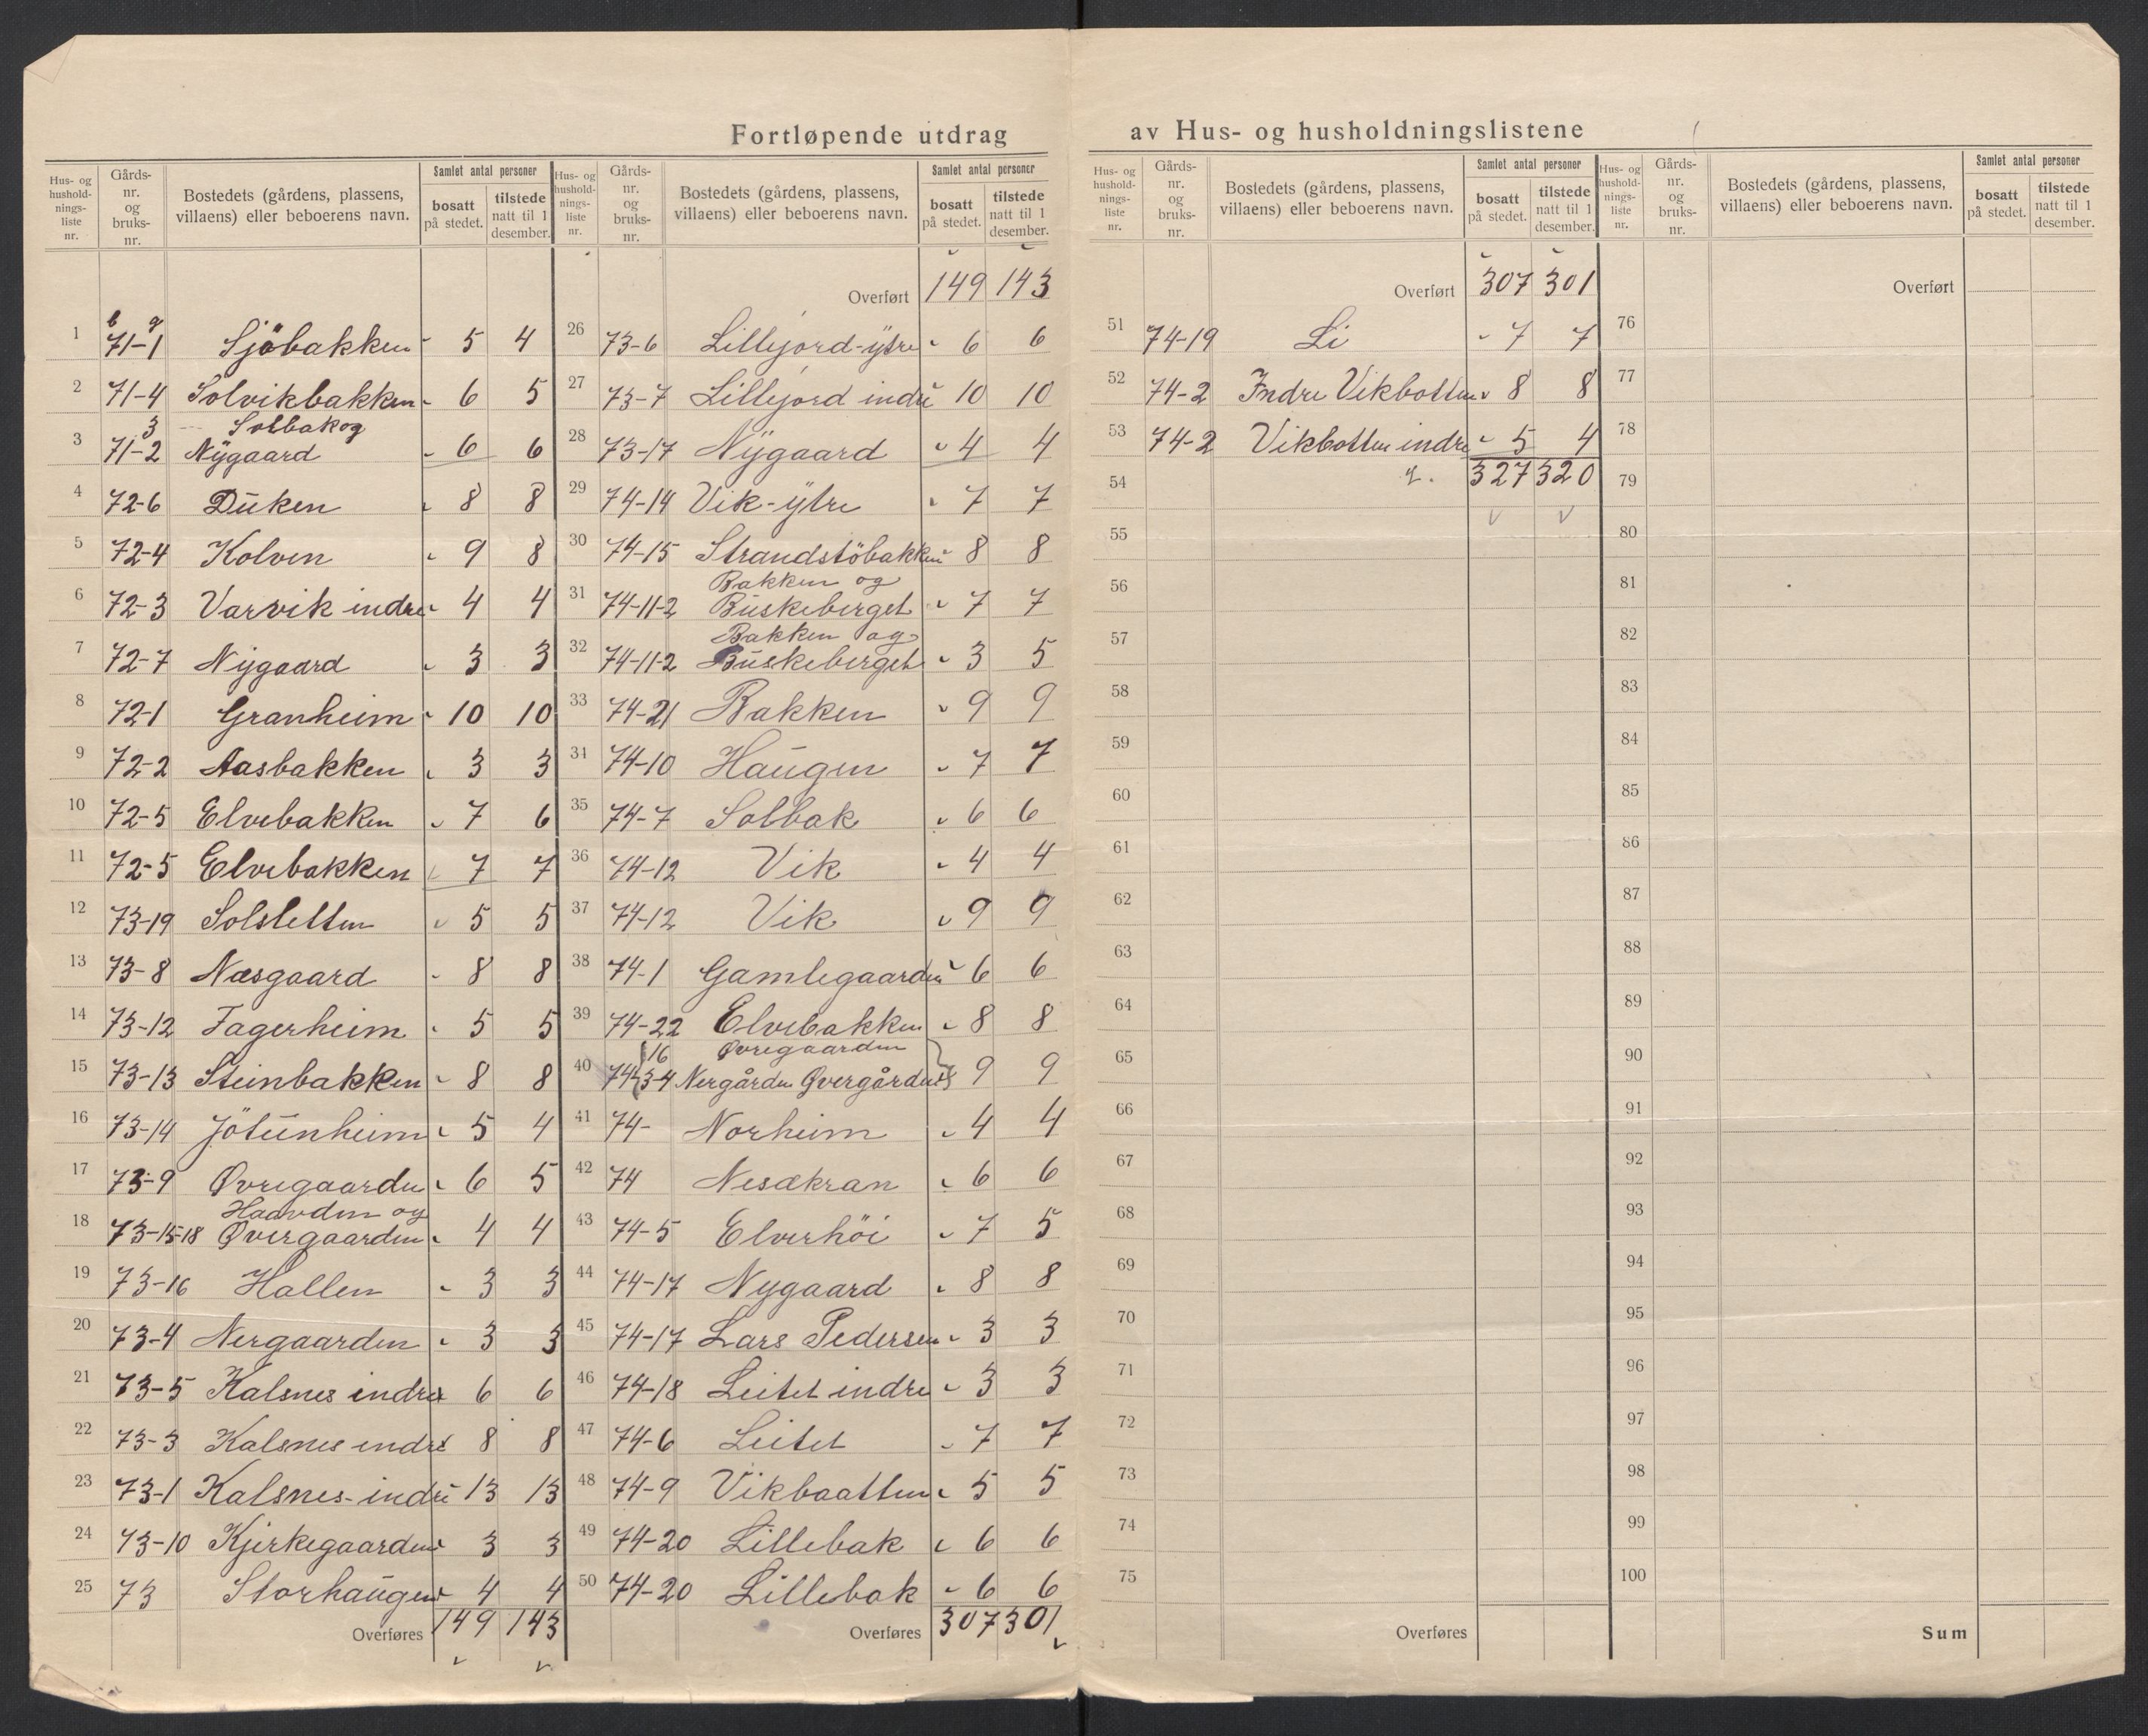 Fortløpende utdrag av Hus- og husholdningslistene
Hus- og hushold- nings- liste nr. Gårds- nr. og bruks- nr. Bostedets (gårdens, plassens, villaens) eller beboerens navn. Samlet antal personer bosatt på stedet. tilstede natt til 1 desember.
b g
1 71-1 Sjöbakken 5 4
2 71-4 Solvikbakken 6 5
3 Solbak og
3 71-2 Nÿgaard 6 6
4 72-6 Düken 8 8
5 72-4 Kolven 9 8
6 72-3 Varvik indre 4 4
7 72-7 Nÿgaard 3 3
8 72-1 Granheim 10 10
9 72-2 Aasbakken 3 3
10 72-5 Elvebakken 7 6
11 72-5 Elvebakken 7 7
12 73-19 Solsletten 5 5
13 73-8 Næsgaard 8 8
14 73-12 Fagerheim 5 5
15 73-13 Steinbakken 8 8
16 73-14 Jötünheim 5 4
17 73-9 Øvregaarden 6 5
Haavden og
18 73-15-18 Øvergaarden 4 4
19 73-16 Hallen 3 3
20 73-4 Nergaarden 3 3
21 73-5 Kalsnes indre 6 6
22 73-3 Kalsnes indre 8 8
23 73-1 Kalsnes-indre 13 13
24 73-10 Kjirkegaarden 3 3
25 73 Storhaügen 4 4
Overføres 149 143
Hus- og hushold- nings- liste nr. Gårds- nr. og bruks- nr. Bostedets (gårdens, plassens, villaens) eller beboerens navn. Samlet antal personer bosatt på stedet. tilstede natt til 1 desember.
Overført 149 143
26 73-6 Lillejord-ÿtre 6 6
27 73-7 Lillejord indre 10 10
28 73-17 Nÿgaard 4 4
29 74-14 Vik-ÿtre 7 7
30 74-15 Strandstöbakken 8 8
Bakken og
31 74-11-2 Büskeberget 7 7
Bakken og
32 74-11-2 Büskeberget 3 5
33 74-21 Bakken 9 9
34 74-10 Haügen 7 7
35 74-7 Solbak 6 6
36 74-12 Vik 4 4
37 74-12 Vik 9 9
38 74-1 Gamlegaarden 6 6
39 74-22 Elvebakken 8 8
16 Øvregaarden
40 74-3-4 Nergården Øvergården 9 9
41 74- Norheim 4 4
42 74 Nesækran 6 6
43 74-5 Elverhöi 7 5
44 74-17 Nygaard 8 8
45 74-17 Lars Pedersen 3 3
46 74-18 Leitet indre 3 3
47 74-6 Leitet 7 7
48 74-9 Vikbaatten 5 5
49 74-20 Lillebak 6 6
50 74-20 Lillebak 6 6
Overføres 307 301
Hus- og hushold- nings- liste nr. Gårds- nr. og bruks- nr. Bostedets (gårdens, plassens, villaens) eller beboerens navn. Samlet antal personer bosatt på stedet. tilstede natt til 1 desember.
Overført 307 301
51 74-19 Li 7 7
52 74-2 Indre Vikbotten 8 8
53 74-2 Vikbotten indre 5 4
54 327 320
55
56
57
58
59
60
61
62
63
64
65
66
67
68
69
70
71
72
73
74
75
Overføres
Hus- og hushold- nings- liste nr. Gårds- nr. og bruks- nr. Bostedets (gårdens, plassens, villaens) eller beboerens navn. Samlet antal personer bosatt på stedet. tilstede natt til 1 desember.
Overført
76
77
78
79
80
81
82
83
84
85
86
87
88
89
90
91
92
93
94
95
96
97
98
99
100
Sum